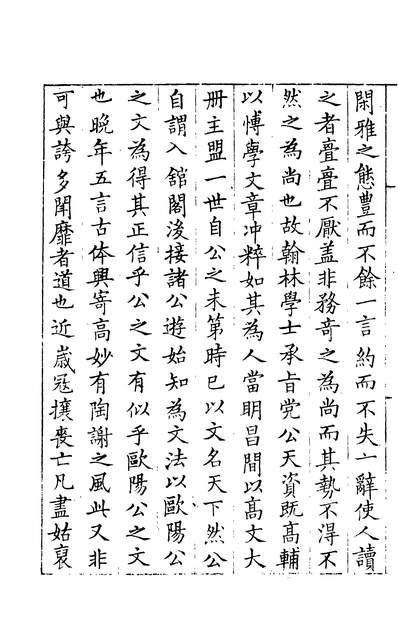 閑雅之態豊而不餘一言約而不失一辭使人讀
之者亹亹不厭盖非務竒之為尚而其勢不得不
然之為尚也故翰林學士承㫖党公天資既髙輔
以博學文章冲粹如其為人當明昌間以髙文大
册主盟一世自公之未第時已以文名天下然公
自謂入舘閣後接諸公遊始知為文法以歐陽公
之文為得其正信乎公之文有似乎歐陽公之文
也晚年五言古体興寄高妙有陶謝之風此又非
可與誇多鬭靡者道也近嵗冦攘喪亡凡盡姑裒